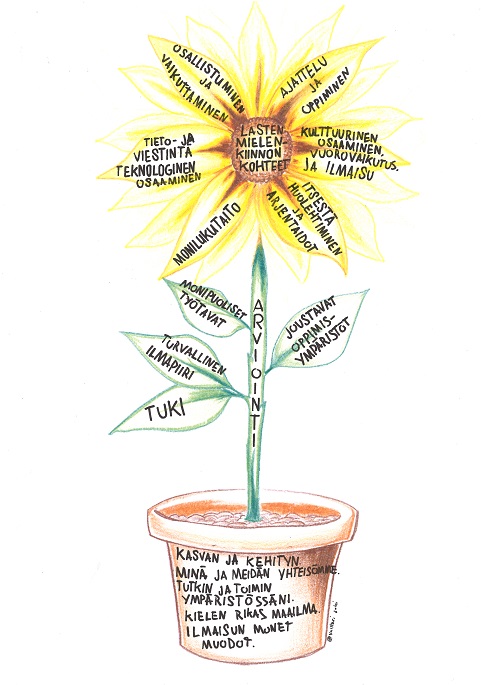 OSALLISTUMINEN
JA
VAIKUTTAMINEN
AJATTELU
JA
OPPIMINEN
TIETO- JA
VIESTINTÄ
TEKNOLOGINEN
OSAAMINEN
LASTEN
MIELEN
KIINNON
KOHTEET
KULTTUURINEN
OSAAMINEN,
VUOROVAIKUTUS.
JA ILMAISU
MONILUKUTAITO
ITSESTÄ
HUOLEHTIMINEN
JA
ARJENTAIDOT
MONIPUOLISET
TYÖTAVAT
ARVIOINTI
JOUSTAVAT
OPPIMIS-
YMPÄRISTÖT
TURVALLINEN
ILMAPIIRI
TUKI
KASVAN JA KEHITYN.
MINÄ JA MEIDÄN YHTEISÖMME.
TUTKIN JA TOIMIN
YMPÄRISTÖSSÄNI.
KIELEN RIKAS MAAILMA.
ILMAISUN MONET
MUODOT.